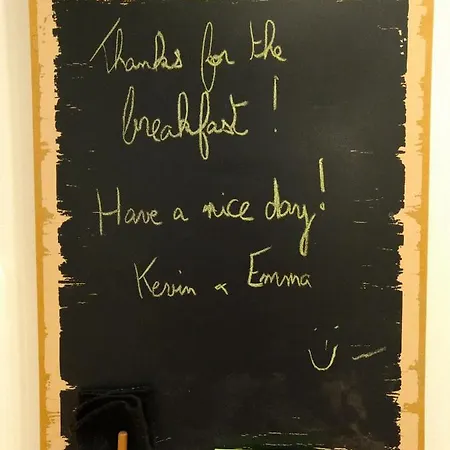 Thanks for the
breakfast !
Have a nice day !
Kevin & Emma